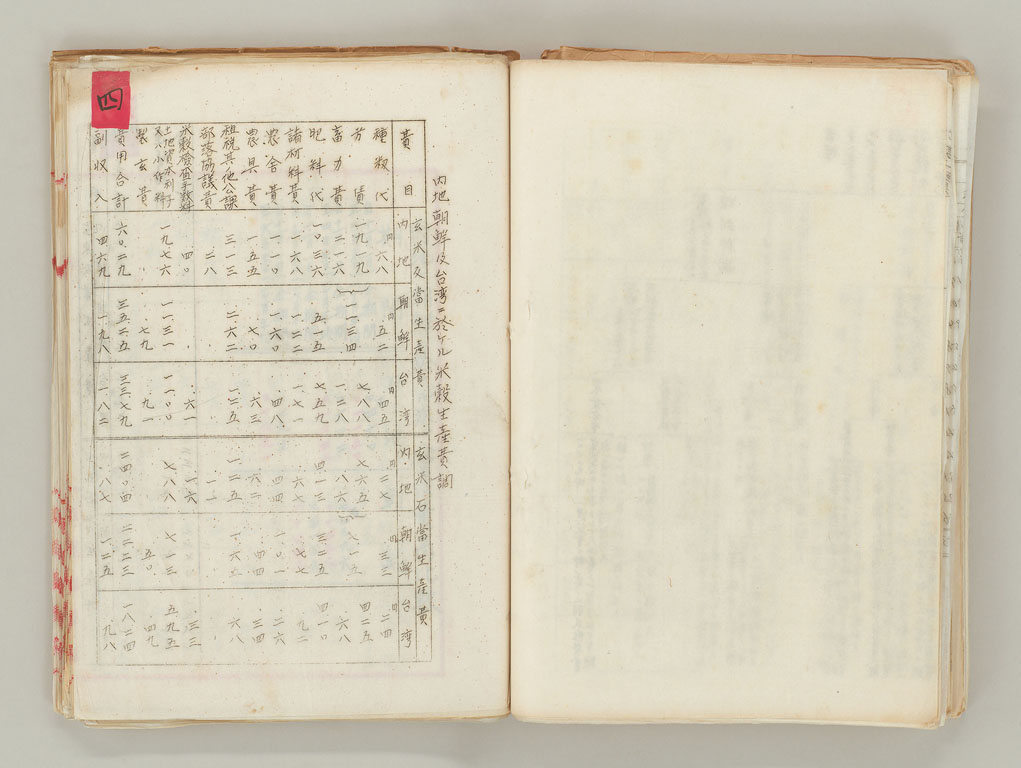 四
内地朝鮮及台湾ニ於ケル米穀生產費調
費目 玄米反當生產費 玄米石當生產費
内地 朝鮮 台湾 内地 朝鮮 台湾
種籾代 円.六八 円.五二 円.四五 円.二七 円.三三 円.二四
労賃 一九.一九 一一.三四 七.八八 七.六五 七.一五 四.二五
畜力費 二.一六 一.二八 .八六 .六八
肥料代 一〇.三六 五.一五 七.五九 四.一三 三.二五 四.一〇
諸材料費 一.六八 一.二二 一.七一 .六七 .七七 .九二
農舎費 一.一〇 一.六〇 .四八 .四四 一.〇一 .二六
農具費 一.五五 .七〇 .六三 .六二 .四四 .三四
租税其他公課 三.一三 二.六二 一.二五 一.二五 一.六五 .六八
部落協議費 .二八 .一一
米穀検査手数料 .四〇 .六一 .一六 .三三
土地資本利子又ハ小作料 一九.七六 一一.三一 一一.〇〇 七.八八 七.一三 五.九五
製玄費 .七九 .九一 .五〇 .四九
費用合計 六〇.二九 三五.二五 三三.七九 二四.〇四 二二.二三 一八.二四
副収入 四.六九 一.九八 一.八二 一.八七 一.二五 .九八